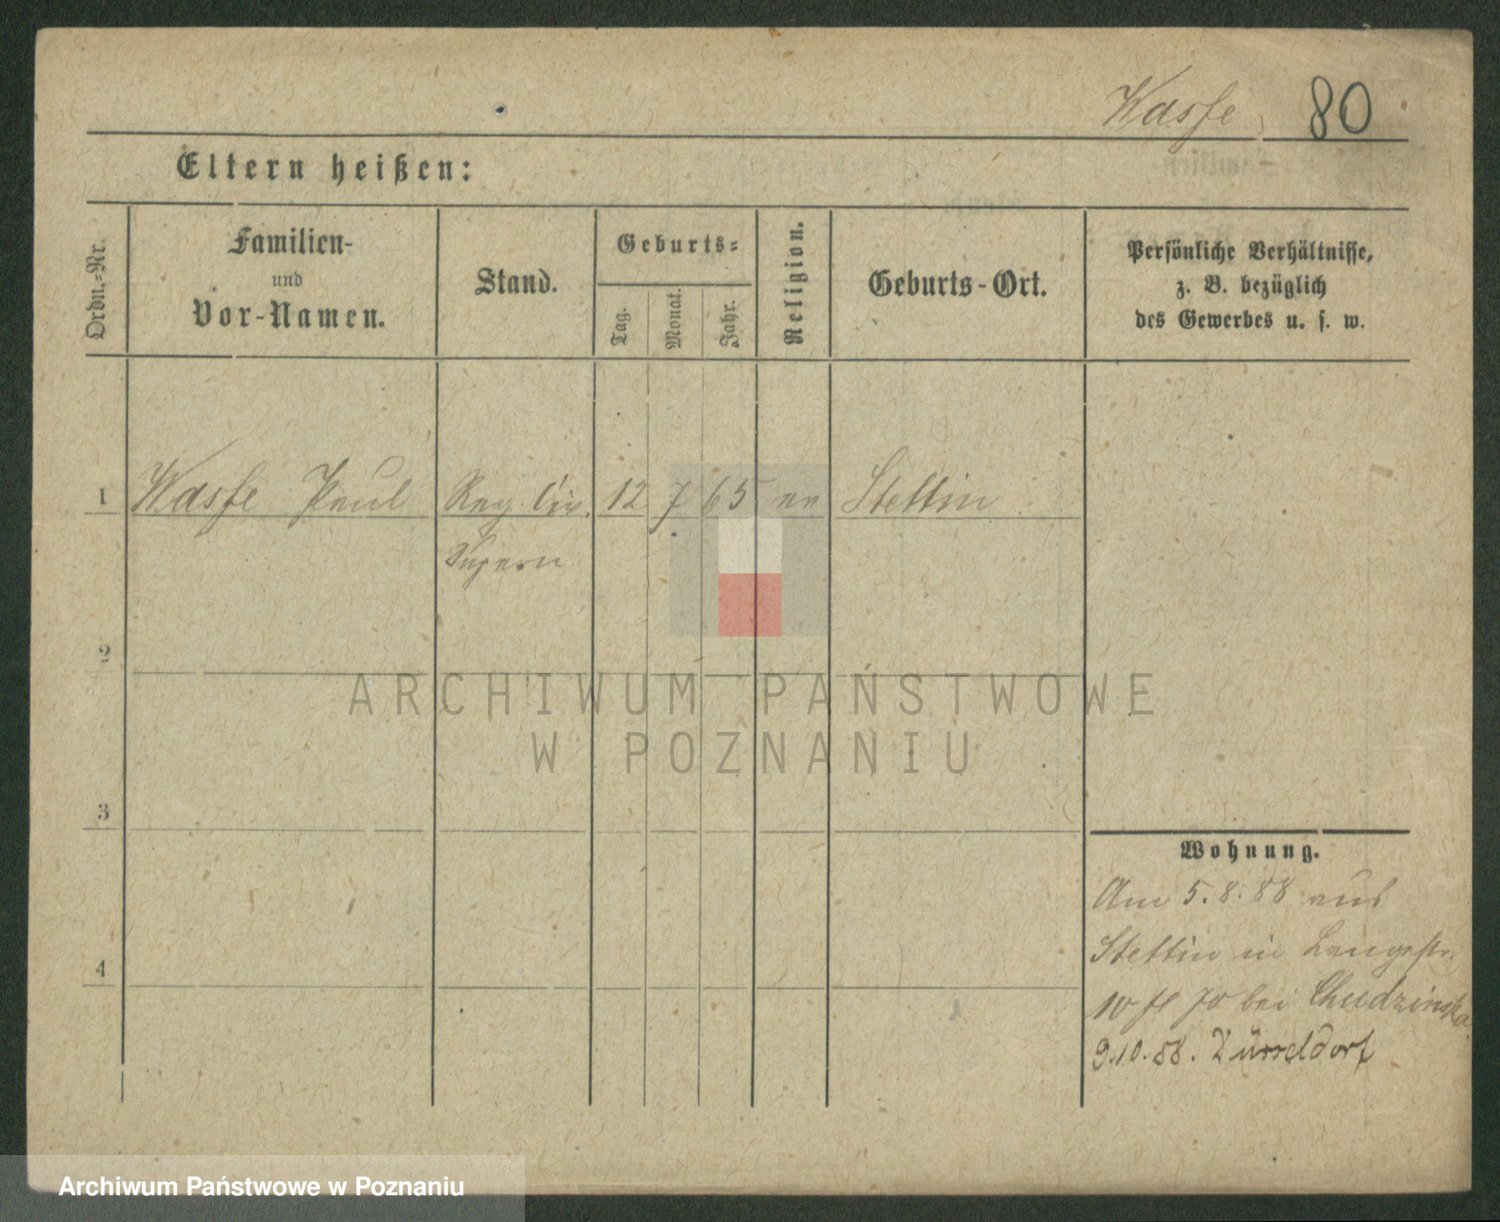 Wasse 80
Eltern heißen:
Ordn.-Nr.
Familien-
und
Vor-Namen.
Stand.
Geburts-
Tag.
Monat.
Jahr.
Religion.
Geburts-Ort.
Persönliche Verhältnisse,
z. B. bezüglich
des Gewerbes u. s. w.
1 Wasse Paul Reg. 12 7 65 Stettin
2
3
4
Wohnung.
Am 5.8.88 aus
Stettin in Langestr.
10 bei Chudzinska
9.10.88. Düsseldorf
ARCHIWUM PAŃSTWOWE
W POZNANIU
Archiwum Państwowe w Poznaniu